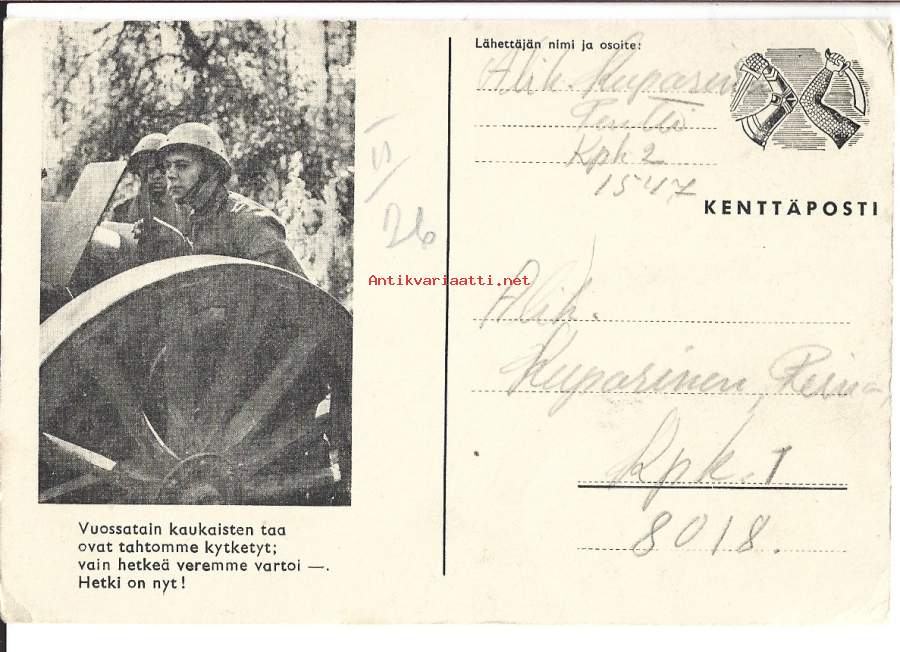 Vuossatain kaukaisten taa
ovat tahtomme kytketyt;
vain hetkeä veremme vartoi —.
Hetki on nyt!
II/
26
Antikvariaatti.net
Lähettäjän nimi ja osoite:
Alik. Kuparinen
Pentti
Kpk 2
1547
KENTTÄPOSTI
Alik.
Kuparinen, Reino
Kpk. 1
8018.